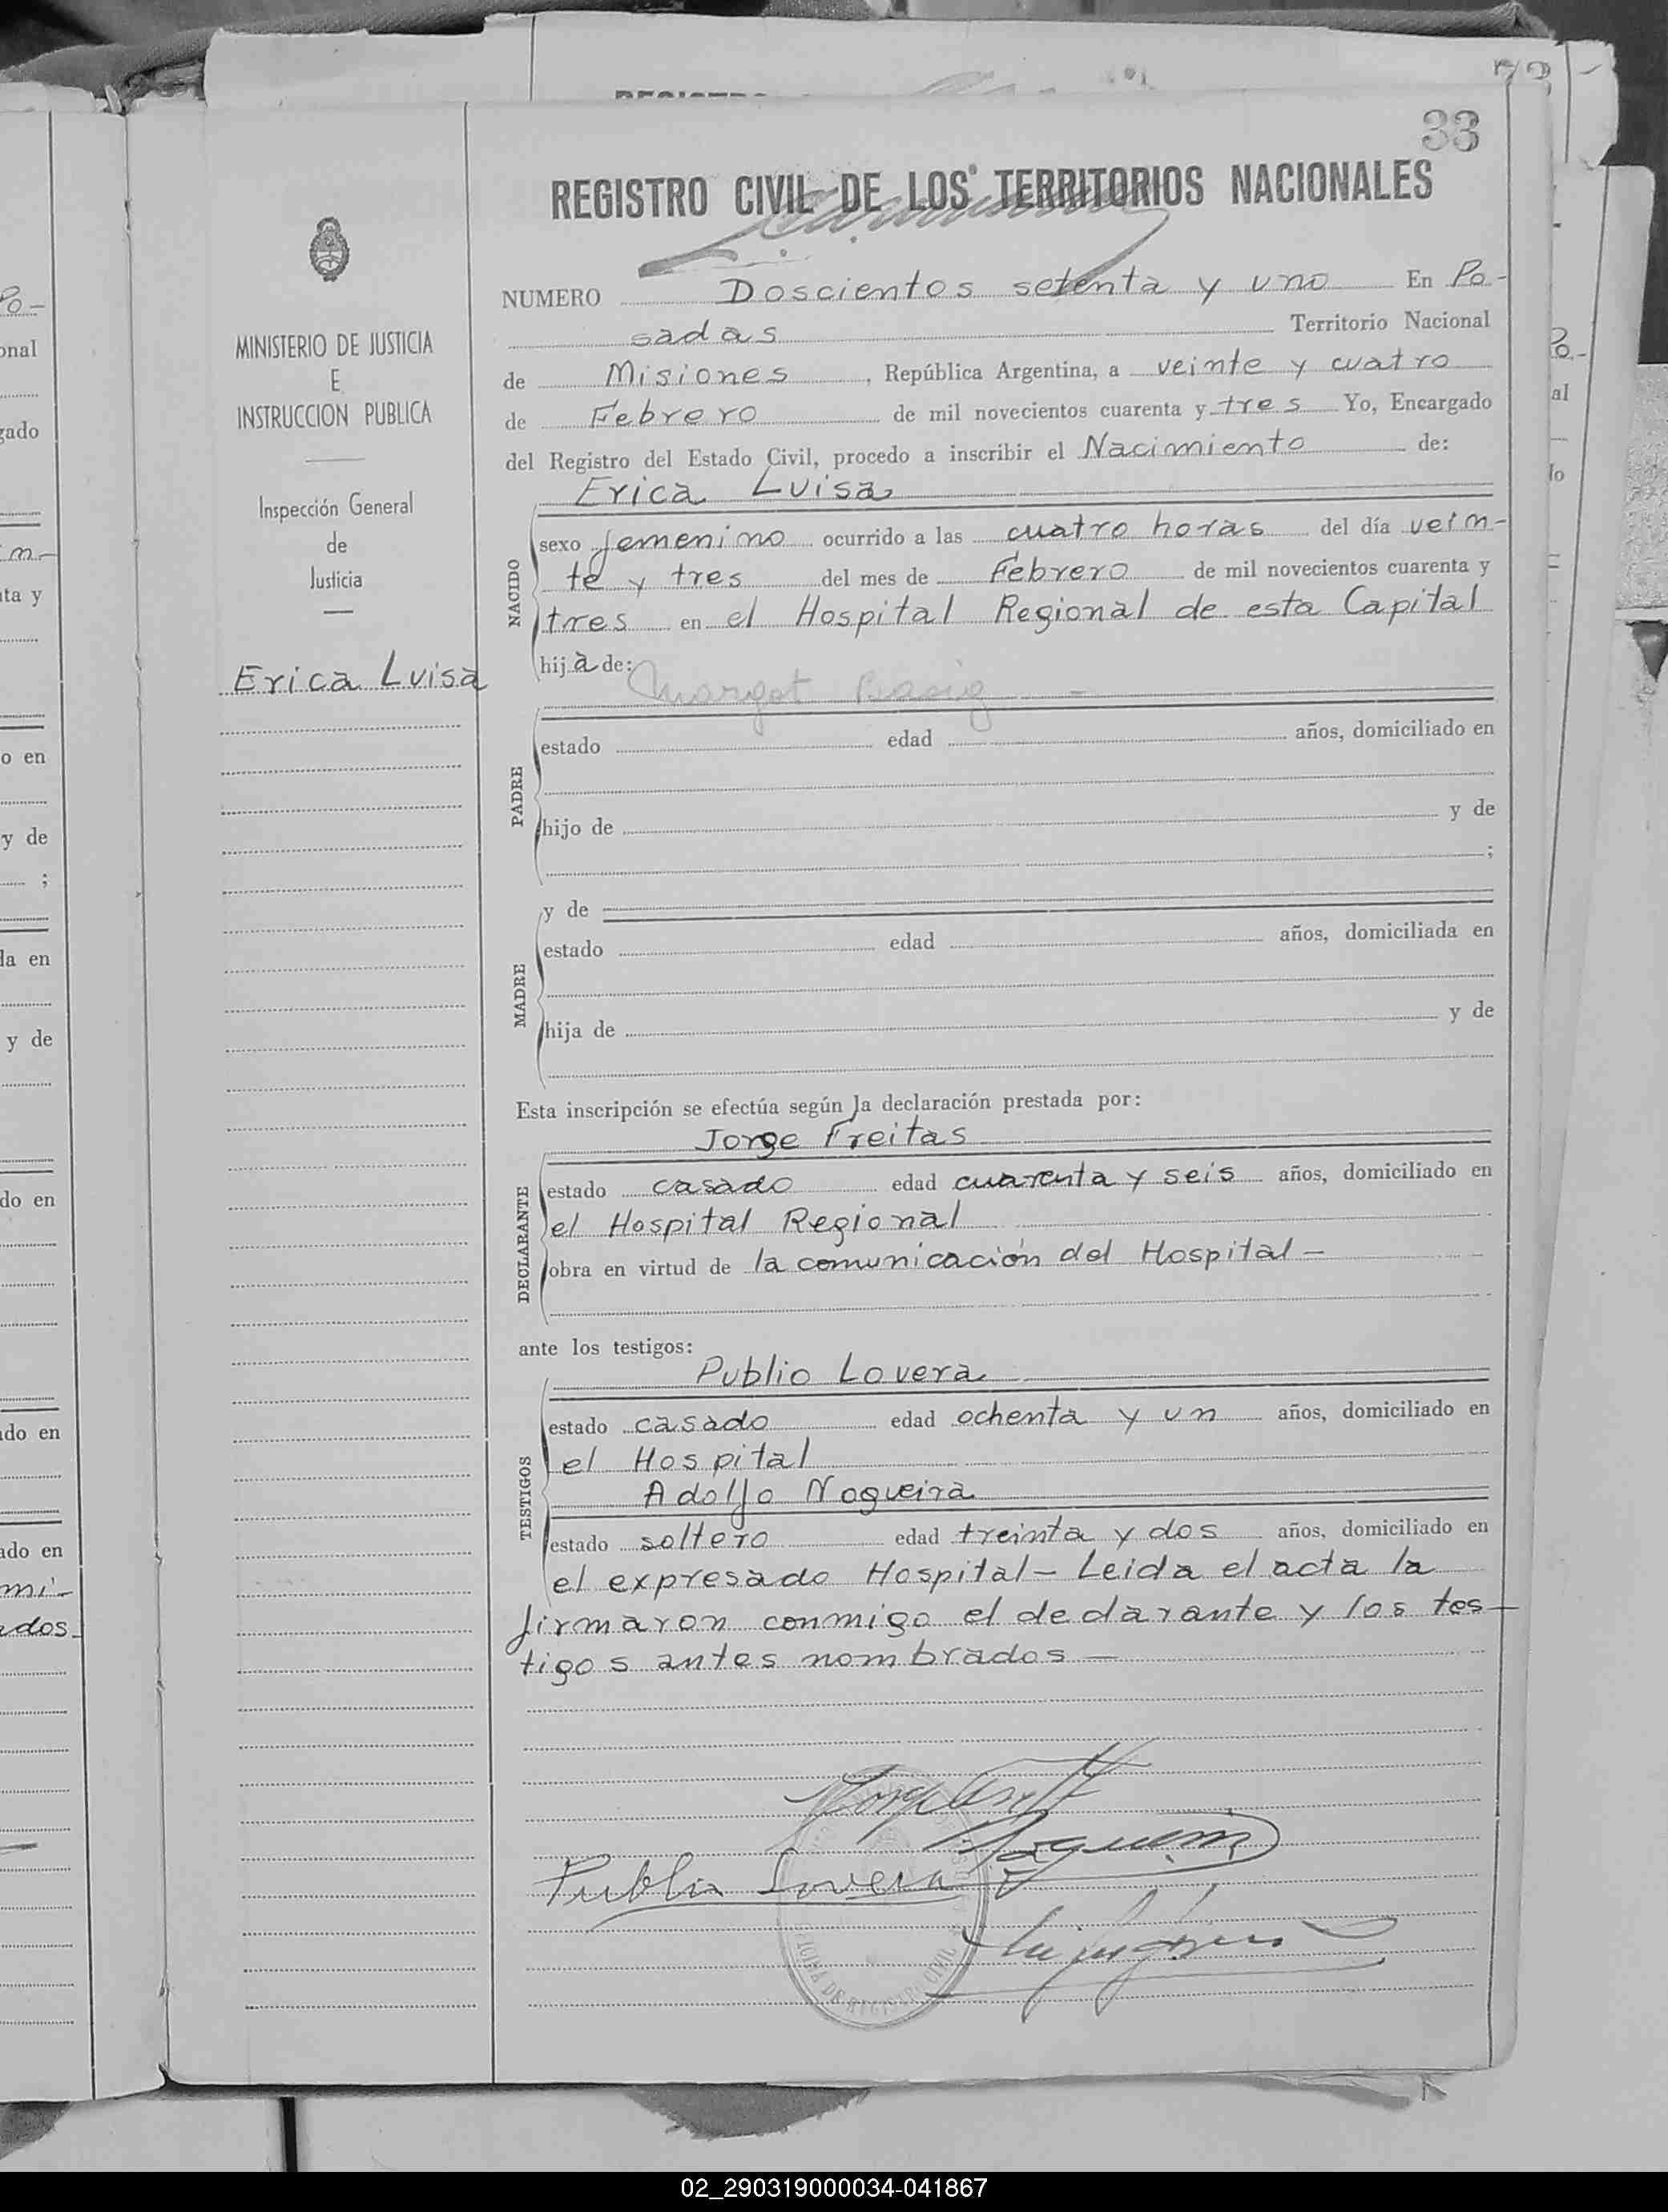 33
REGISTRO CIVIL DE LOS TERRITORIOS NACIONALES
MINISTERIO DE JUSTICIA
E
INSTRUCCION PUBLICA
Inspección General
de
Justicia
Erica Luisa
NUMERO Doscientos setenta y uno En Po-
sadas Territorio Nacional
de Misiones, República Argentina, a veinte y cuatro
de Febrero de mil novecientos cuarenta y tres Yo, Encargado
del Registro del Estado Civil, procedo a inscribir el Nacimiento de:
Erica Luisa
NACIDO
sexo femenino ocurrido a las cuatro horas del día vein-
te y tres del mes de Febrero de mil novecientos cuarenta y
tres en el Hospital Regional de esta Capital
hija de:
Margot
PADRE
estado edad años, domiciliado en
hijo de y de
;
y de
MADRE
estado edad años, domiciliada en
hija de y de
Esta inscripción se efectúa según la declaración prestada por:
Jorge Freitas
DECLARANTE
estado casado edad cuarenta y seis años, domiciliado en
el Hospital Regional
obra en virtud de la comunicación del Hospital-
ante los testigos:
Publio Lovera
TESTIGOS
estado casado edad ochenta y un años, domiciliado en
el Hospital
Adolfo Nogueira
estado soltero edad treinta y dos años, domiciliado en
el expresado Hospital- Leida el acta la
firmaron conmigo el declarante y los tes-
tigos antes nombrados-
Publio Lovera
02_290319000034-041867